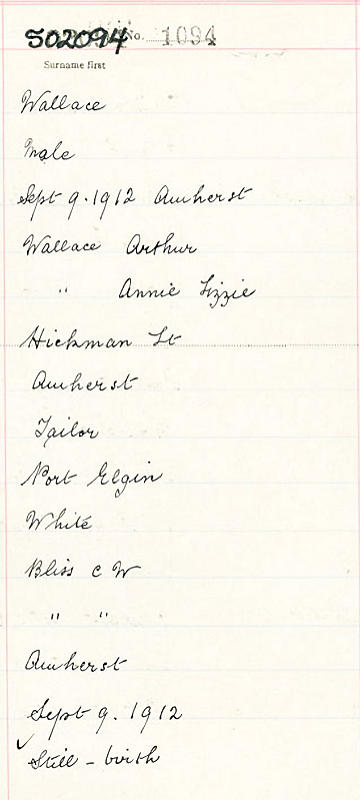 502094 No. 1094
Surname first
Wallace
Male
Sept 9. 1912 Amherst
Wallace Arthur
" Annie Lizzie
Hickman St
Amherst
Tailor
Port Elgin
White
Bliss C W
" "
Amherst
Sept 9. 1912
✓ Still - birth